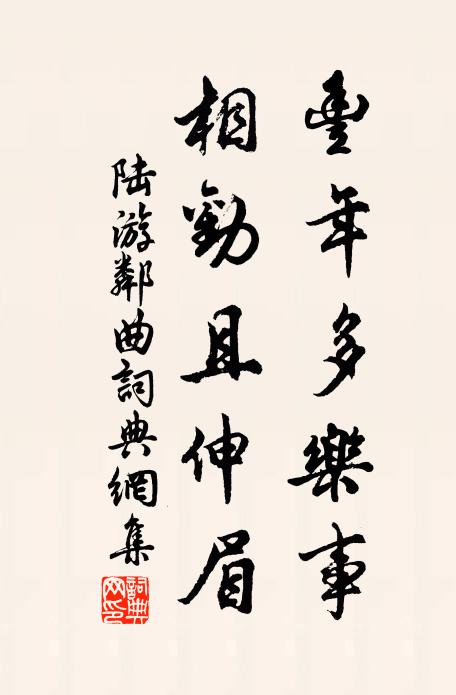 豐年多樂事
相勸且伸眉
陸游鄰曲詞典網集
詞典網印